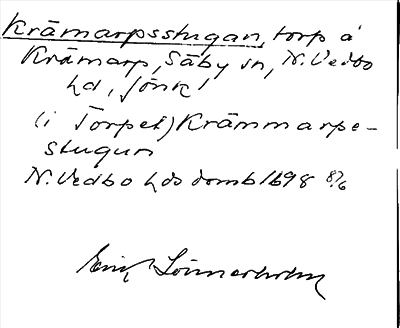 Krämarpsstugan, torp å
Krämarp, Säby sn, N. Vedbo
hd, Jönk l
(i Torpet) Krämmarpe-
stugun
N. Vedbo hds domb 1698 8/6